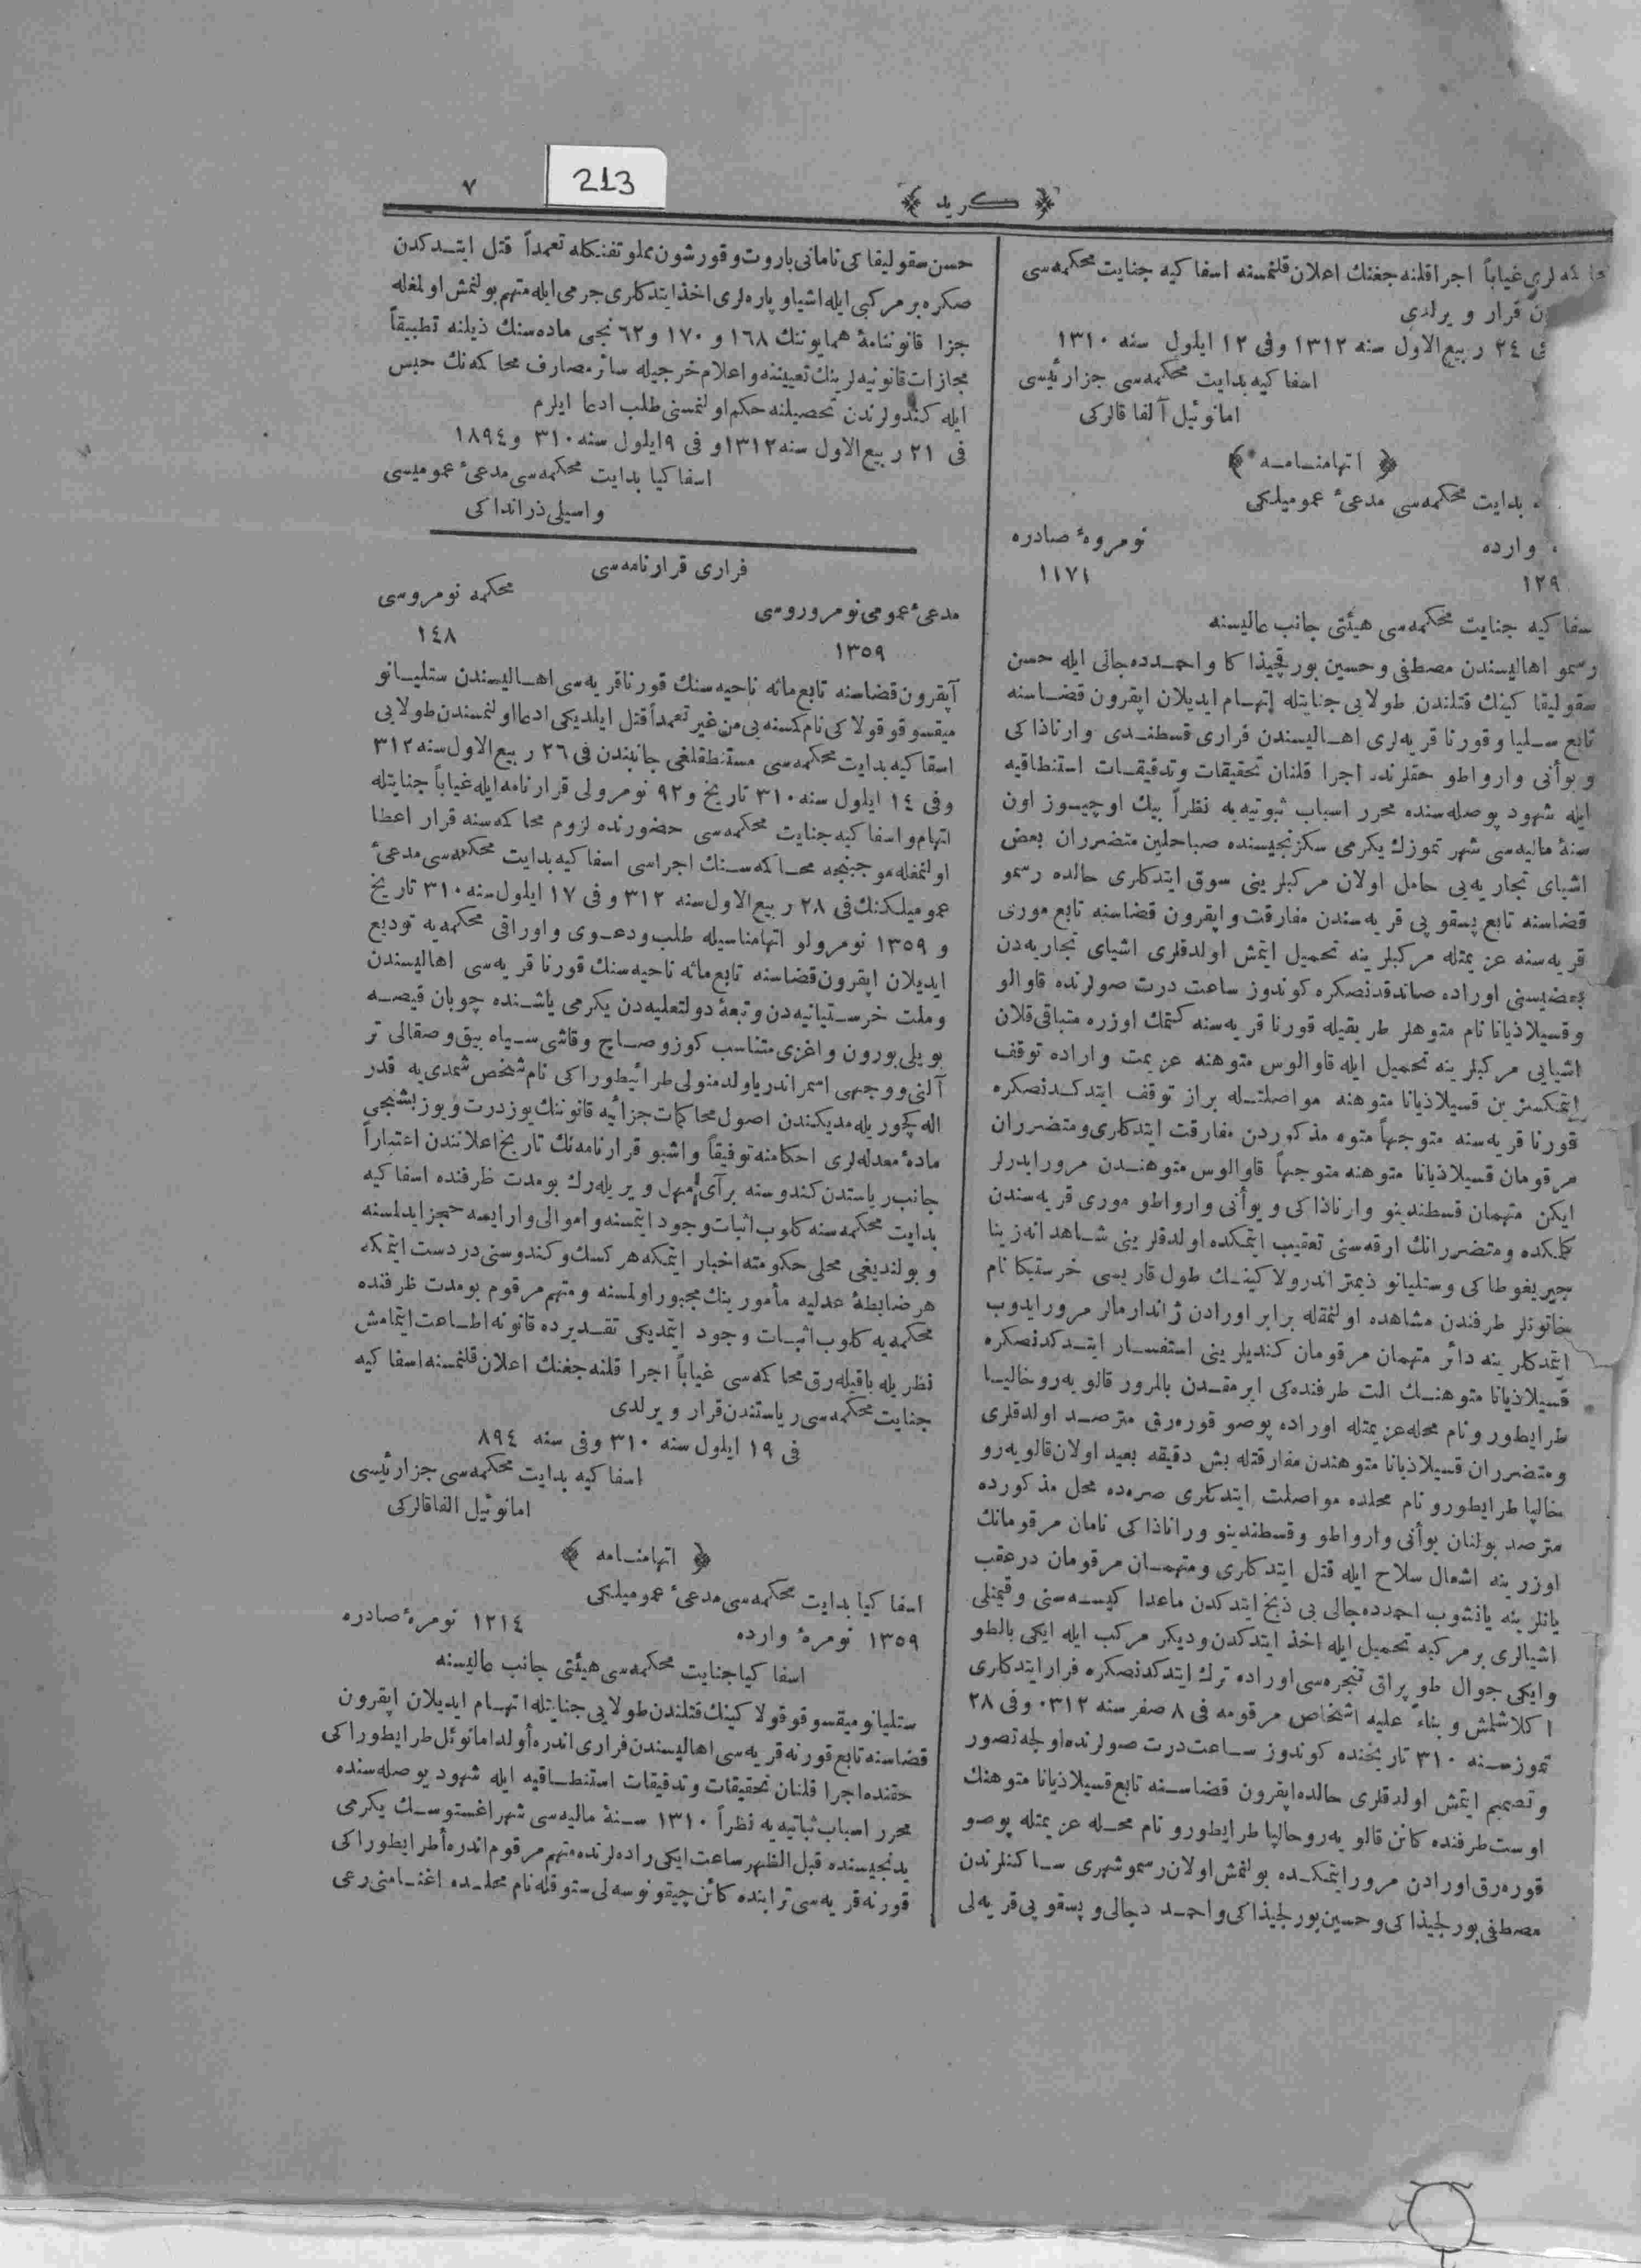 ٧
213
﴿ كريد ﴾
لری غیاباً اجرا قلنه جغنك اعلان قلنمسنه اسفا كیه جنایت محكمه سی
قرار ویرلدی
٢٤ ربیع الاول سنه ١٣١٢ وفی ١٢ ایلول سنه ١٣١٠
اسفا كیه بدایت محكمه سی جزا رئیسی
امانوئیل آلفا قالركی
﴿ اتهامنـامـه ﴾
بدایت محكمه سی مدعیٔ عمومیلكی
وارده نومروهٔ صادره
١٢٩ ١١٧١
سفا كیه جنایت محكمه سی هیئتی جانب عالیسنه
رسمو اهالیسندن مصطفی وحسین بورقجیذا كا واحمـدده جالی ایله حسن
سقولیقا كینك قتلندن طولایی جنایتله اتهـام ایدیلان اپقرون قضـاسنه
تابع سـلیا وقورنا قریه لری اهـالیسندن فراری قسطنـدی وارناذا كی
ویوأنی وارواطو حقلرنده اجرا قلنان تحقیقات وتدقیقـات استنطاقیه
ایله شهود پوصله سنده محرر اسباب ثبوتیه یه نظراً بیك اوچیـوز اون
سنهٔ مالیه سی شهر تموزك یكرمی سكزنجیسنده صباحلین متضرران بعض
اشیای تجاریه یی حامل اولان مركبلرینی سوق ایتدكلری حالده رسمو
قضاسنه تابع پسقوپی قریه سندن مفارقت واپقرون قضاسنه تابع موری
قریه سنه عزیمتله مركبلرینه تحمیل ایتمش اولدقلری اشیای تجاریه دن
بعضیسنی اوراده صاندقدنصكره كوندوز ساعت درت صولرنده قاوالو
وقسیلاذیانا نام متوهلر طریقیله قورنا قریه سنه كتمك اوزره متباقی قلان
اشیایی مركبلرینه تحمیل ایله قاوالوس متوهنه عزیمت واراده توقف
ایتمكسزین قسیلاذیانا متوهنه مواصلتـله براز توقف ایتدكـدنصكره
قورنا قریه سنه متوجهاً متوه مذكوردن مفارقت ایتدكلری ومتضرران
مرقومان قسیلاذیانا متوهنه متوجهاً قاوالوس متوهنـدن مرور ایدرلر
ایكن متهمان قسطندینو وارناذا كی ویوأنی وارواطو موری قریه سندن
كلمكده ومتضررانك ارقه سنی تعقیب ایتمكده اولدقلرینی شـاهد انه زینا
جیریغوطا كی وستلیانو ذیمتر اندرولا كینـك طول قاریسی خرستیكا نام
خاتونلر طرفندن مشاهده اولنمقله برابر اورادن ژاندارمالر مرور ایدوب
ایتمدكلرینه دائر متهمان مرقومان كندیلرینی استفسـار ایتـدكدنصكره
قسیلاذیانا متوهنـك الت طرفنده كی ایرمقـدن بالمرور قالو یه رو خالیـا
طرایطورو نام محله عزیمتله اوراده پوصو قوره رق مترصـد اولدقلری
ومتضرران قسیلاذیانا متوهندن مفارقتله بش دقیقه بعید اولان قالو یه رو
خالیا طرایطورو نام محلده مواصلت ایتدكلری صره ده محل مذكورده
مترصد بولنان یوأنی وارواطو وقسطندینو ورانا ذا كی نامان مرقومانك
اوزرینه اشعال سلاح ایله قتل ایتدكلری ومتهمـان مرقومان درعقب
یانلرینه یانشوب احمدده جالی یی ذبخ ایتدكدن ماعدا كیسـه سنی وقیمتلی
اشیالری بر مركبه تحمیل ایله اخذ ایتدكدن ودیكر مركب ایله ایكی بالطو
وایكی جوال طوپراق تنجره سی اوراده ترك ایتدكدنصكره فرار ایتدكلری
اكلاشلمش وبناءً علیه اشخاص مرقومه فی ٨ صفر سنه ٣١٢ وفی ٢٨
تموز سـنه ٣١٠ تاریخنده كوندوز سـاعت درت صولرنده اولجه تصور
وتصمیم ایتمش اولدقلری حالده اپقرون قضاسـنه تابع قسیلاذیانا متوهنك
اوست طرفنده كائن قالو یه رو حالیا طرایطورو نام محـله عزیمتله پوصو
قوره رق اورادن مرور ایتمكـده بولنمش اولان رسمو شهری سـاكنلرندن
مصطفی بورلجیذا كی وحسین بورلجیذا كی واحمـد دجالی و پسقوپی قریه لی
حسن سقولیقا كی نامانی باروت وقورشون مملو تفنكله تعمداً قتل ایتـدكدن
صكره بر مركبی ایله اشیا و پاره لری اخذ ایتدكلری جرمی ایله متهم بولنمش اولمغله
جزا قانوننامهٔ همایوننك ١٦٨ و ١٧٠ و ٦٢ نجی ماده سنك ذیلنه تطبیقاً
مجازات قانونیه لرینك تعییننه واعلام خرجیله سائر مصارف محا كه نك حبس
ایله كندولرندن تحصیلنه حكم اولنمسنی طلب ادعا ایلرم
فی ٢١ ربیع الاول سنه ١٣١٢ و فی ٩ ایلول سنه ٣١٠ و ١٨٩٤
اسفا كیا بدایت محكمه سی مدعیٔ عمومیسی
واسیلی ذراندا كی
فراری قرارنامه سی
مدعیٔ عمومی نومروروسی محكمه نومروسی
١٣٥٩ ١٤٨
آپقرون قضاسنه تابع مائه ناحیه سنك قورنا قریه سی اهـالیسندن ستلیـانو
میقسوقوقولا كی نام كسنه یی من غیر تعمداً قتل ایلدیكی ادعا اولنمسندن طولایی
اسفا كیه بدایت محكمه سی مستنطقلغی جانبندن فی ٢٦ ربیع الاول سنه ٣١٢
وفی ١٤ ایلول سنه ٣١٠ تاریخ و ٩٢ نومرولی قرارنامه ایله غیاباً جنایتله
اتهام واسفا كیه جنایت محكمه سی حضورنده لزوم محا كه سنه قرار اعطا
اولنمغله موجبنجه محـا كه سـنك اجراسی اسفا كیه بدایت محكمه سی مدعیٔ
عمومیلكنك فی ٢٨ ربیع الاول سنه ٣١٢ وفی ١٧ ایلول سنه ٣١٠ تاریخ
و ١٣٥٩ نومرولو اتهامناسیله طلب ودعـوی واوراقی محكمه یه تودیع
ایدیلان اپقرون قضاسنه تابع مائه ناحیه سنك قورنا قریه سی اهالیسندن
وملت خرسـتیانیه دن وتبعهٔ دولتعلیه دن یكرمی یاشـنده چوبان قیصـه
بویلی بورون واغزی متناسب كوز وصـاچ وقاشی سـیاه بیق وصقالی تر
آلنی ووجهی اسمر اندریا ولد منولی طرائیطورا كی نام شخص شمدی یه قدر
اله كچوریله مدیكندن اصول محاكمات جزائیه قانوننك یوز درت ویوز بشنجی
مادهٔ معدله لری احكامنه توفیقاً واشبو قرارنامه نك تاریخ اعلانندن اعتباراً
جانب ریاستدن كندوسنه بر آی مهل ویریله رك بو مدت ظرفنده اسفا كیه
بدایت محكمه سنه كلوب اثبات وجود ایتمسنه واموالی وار ایسه حجز ایدلسنه
وبولندیغی محلی حكومته اخبار ایتمكه هركسك وكندوسنی دردست ایتمكه
هر ضابطهٔ عدلیه مأمورینك مجبور اولمسنه ومتهم مرقوم بو مدت ظرفنده
محكمه یه كلوب اثبـات وجود ایتمدیكی تقـدیرده قانونه اطـاعت ایتمامش
نظریله باقیله رق محا كه سی غیاباً اجرا قلنه جغنك اعلان قلنمسنه اسفا كیه
جنایت محكمه سی ریاستندن قرار ویرلدی
فی ١٩ ایلول سنه ٣١٠ وفی سنه ٨٩٤
اسفا كیه بدایت محكمه سی جزا رئیسی
امانوئیل الفاقالركی
﴿ اتهامنـامه ﴾
اسفا كیا بدایت محكمه سی مدعیٔ عمومیلكی
١٣٥٩ نومرهٔ وارده ١٢١٤ نومرهٔ صادره
اسفا كیا جنایت محكمه سی هیئتی جانب عالیسنه
ستلیانو میقسوقوقولا كینك قتلندن طولایی جنایتله اتهـام ایدیلان اپقرون
قضاسنه تابع قورنه قریه سی اهالیسندن فراری اندره أولد امانوئل طرایطورا كی
حقنده اجرا قلنان تحقیقات وتدقیقات استنطـاقیه ایله شهود پوصله سنده
محرر اسباب ثباتیه یه نظراً ١٣١٠ سـنهٔ مالیه سی شهر اغستوسـك یكرمی
یدنجیسنده قبل الظهر ساعت ایكی راده لرنده متهم مرقوم اندره أطرایطورا كی
قورنه قریه سی ترابنده كائن چیقونوسه لی ستوقله نام محلـده اغنـامنی رعی